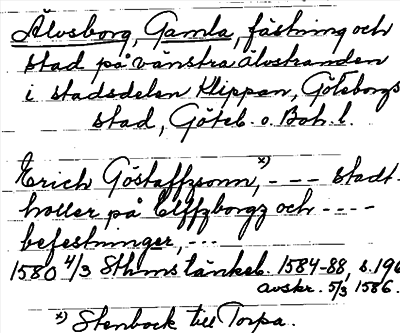 Älvsborg, Gamla, fästning och
stad på vänstra älvstranden
i stadsdelen Klippan, Göteborgs
stad, Göteb. o. Boh. l.
Erich Göstaffzsonn,x) - - - stadt-
holler på Elffzborgz och - - - -
befestninger, - - -
1580 4/3 Sthms tänkeb. 1584-88, s. 196
avskr. 5/3 1586.
x) Stenbock till Torpa.